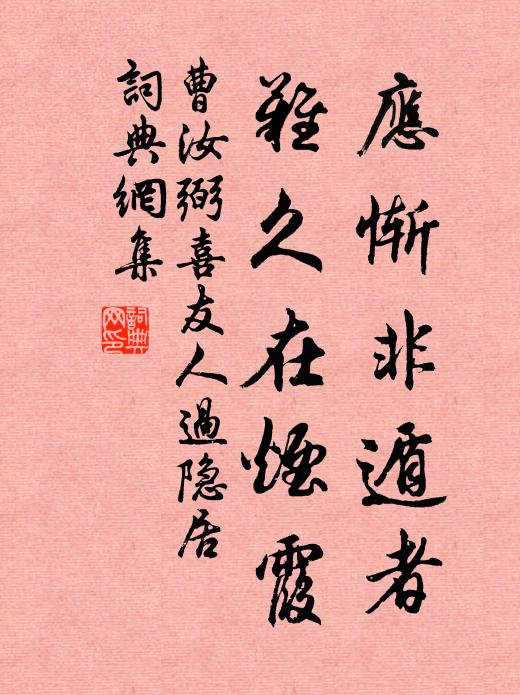 應慚非遁者
難久在煙霞
曹汝弼喜友人過隐居
詞典網集
詞典网印